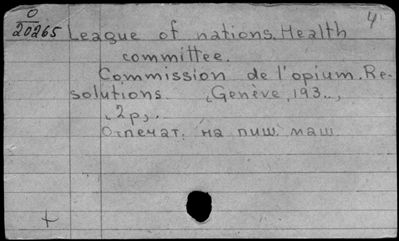 4
О
20265
League of nations. Health
committee.
Commission de l'opium. Re-
solutions. (Genève, 193..,
2p,.
Отпечат. на пиш. маш.
+